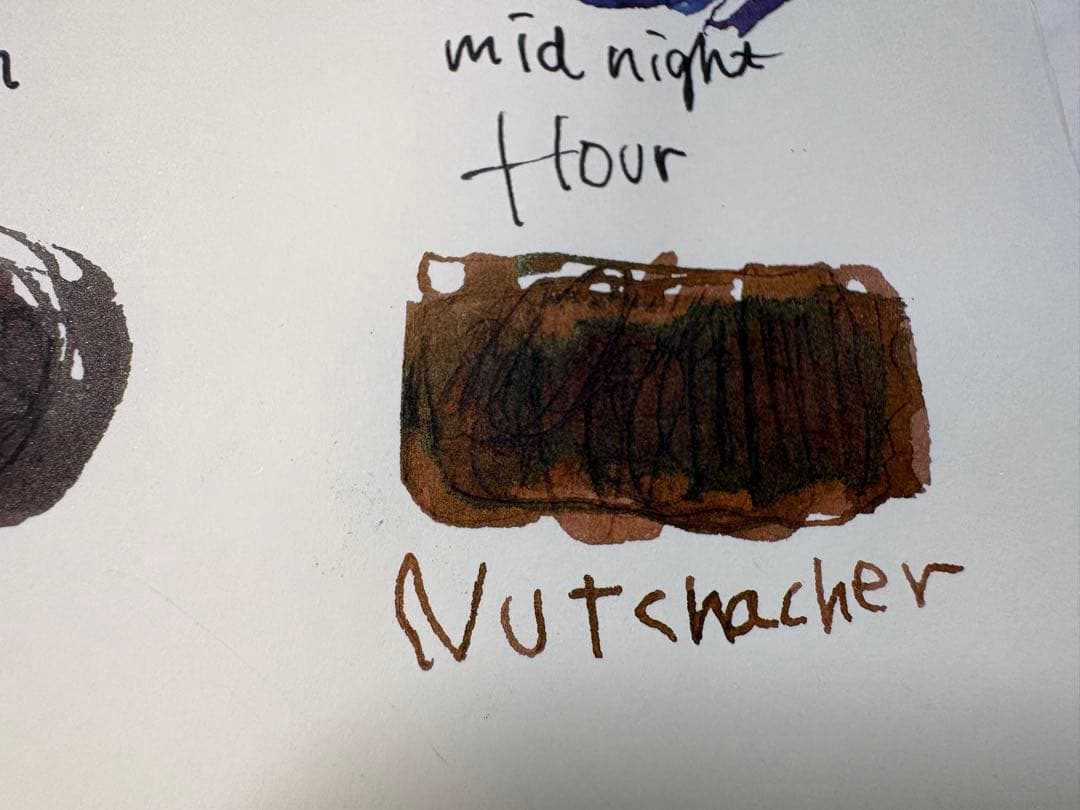 mid night
Hour
Nutchacher